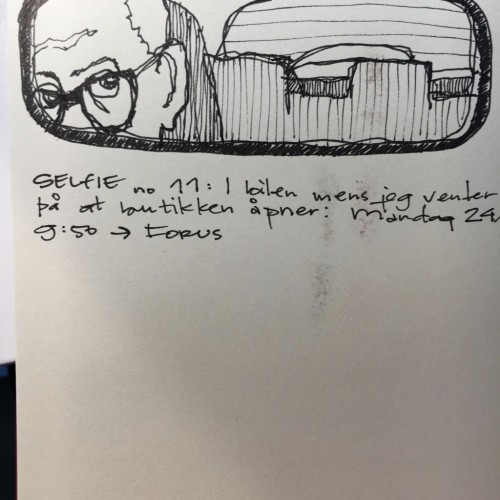 SELFIE no 11: I bilen mens jeg venter
på at butikken åpner: Mandag 24
9:50 → FORUS